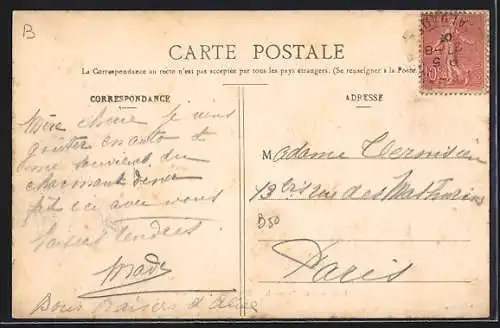 B
CARTE POSTALE
La Correspondance au recto n'est pas acceptée par tous les pays étrangers. (Se renseigner à la Poste
CORRESPONDANCE
ADRESSE
Mère chérie je viens
goûter en auto et
me souviens du
charmant dîner
fait ici avec vous
baisers tendres.
Made
Bons baisers d'
Madame
13 bis rue des Mathurins
B50
Paris